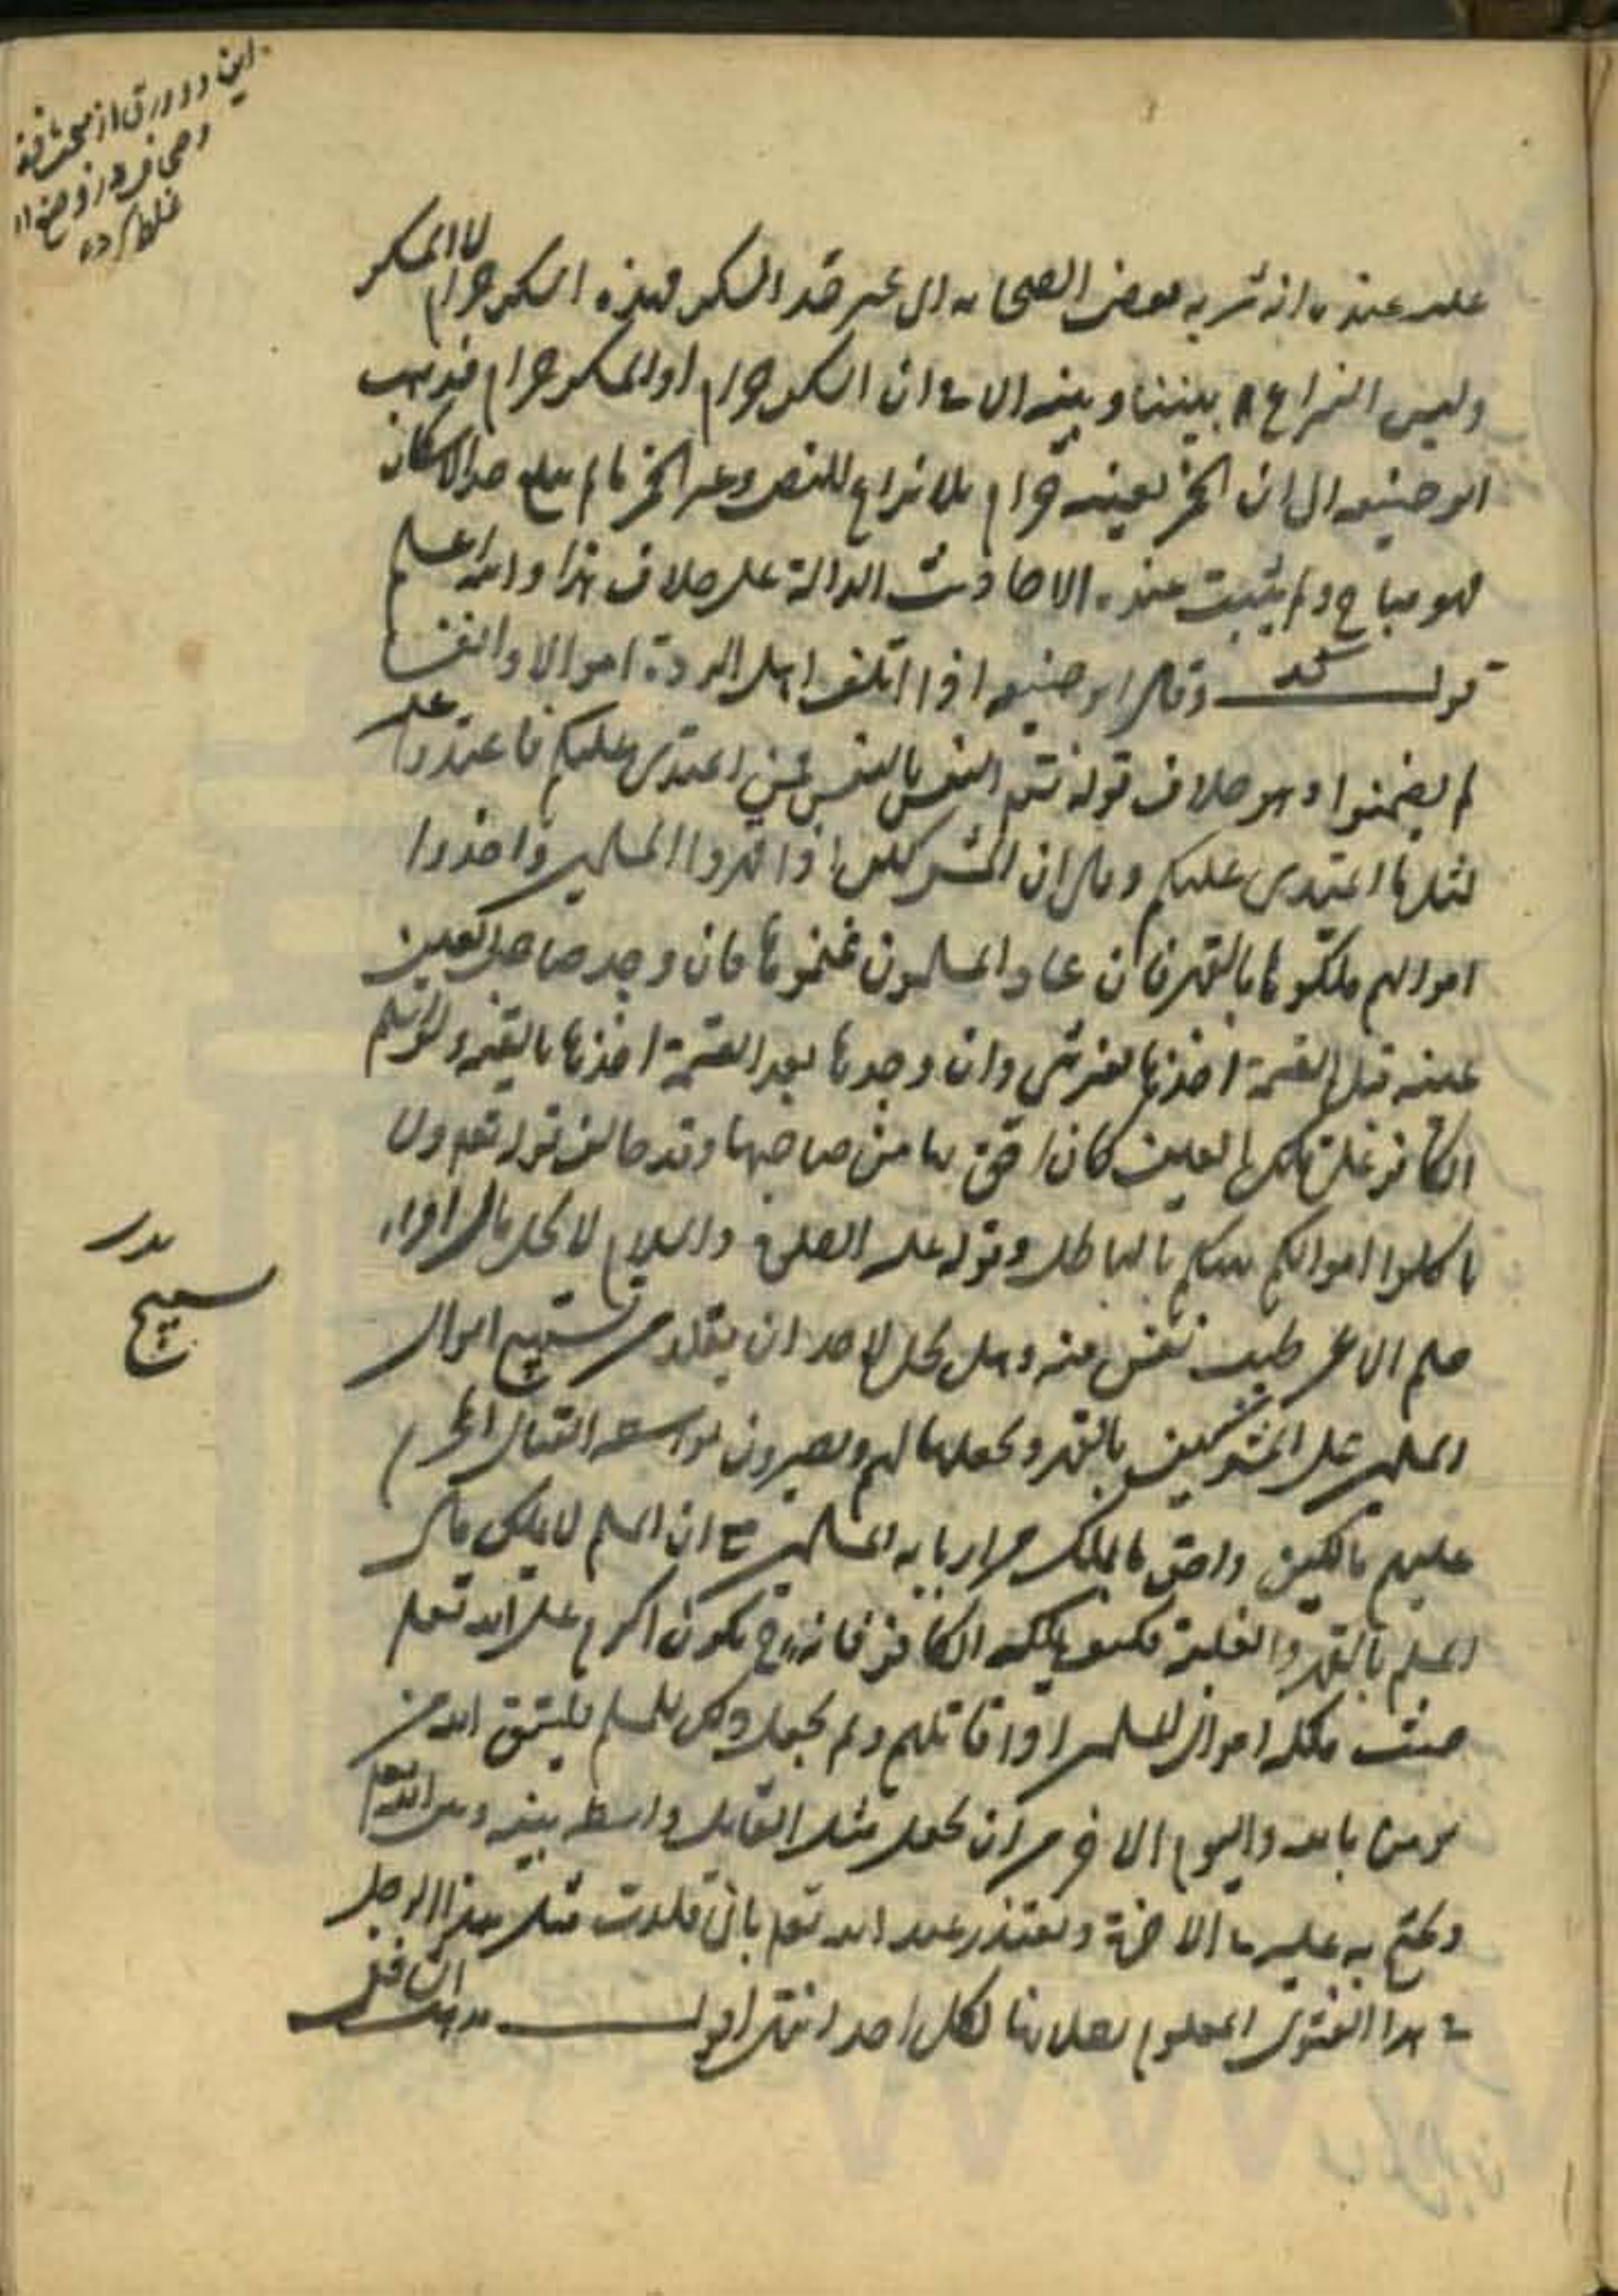 این دو ورق از
غلط کرده
عنده انه شربه بعض الصحابه الى غير حد السكر فهذه السكر حرام لا المسكر
وليس النزاع بيننا وبينه الا في ان السكر حرام او المسكر حرام فذهب
ابو حنيفه الى ان الخمر لعينه حرام بلا نزاع للنص وغير الخمر ما لم يبلغ حد الاسكار
فهو مباح ولم يثبت عنده الاحاديث الدالة على خلاف هذا والله اعلم
قوله وقال ابو حنيفه اذا اتلف اهل الردة اموالا وانفسا
لم يضمنوا وهو خلاف قوله تعم النفس بالنفس فمن اعتدى عليكم فاعتدوا عليه
بمثل ما اعتدى عليكم وقال ان المشركين اذا قهروا المسلمين واخذوا
اموالهم ملكوها بالقهر فان عاد المسلمون غنموها فان وجد صاحب العين
عينه قبل القسمة اخذها بغير شى وان وجدها بعد القسمة اخذها بالقيمه ولو اسلم
الكافر على تلك العين كان احق بها من صاحبها وقد خالف قوله تعم ولا
تاكلوا اموالكم بينكم بالباطل وقوله عليه الصلوة والسلام لا يحل مال امرء
مسلم الا عن طيب نفس منه وهل يحل لاحد ان يقلد من يستبيح اموال
يستبيح
المسلمين على المشركين بالقهر ويجعلها لهم ويصيرون بواسطه القتال المحرم
عليهم مالكين واحق بالملك من اربابه المسلمين مع ان المسلم لا يملك مال
المسلم بالقهر والغلبة فكيف يملكه الكافر فانه ح يكون اكرم على الله تعم
حيث ملكه اموال المسلمين اذا قاتلهم ولم يجعل ذلك للمسلم فليتق الله من
يومن بالله واليوم الاخر من ان يجعل مثل القايل واسطه بينه وبين الله تعم
ويحتج به عليه في الاخرة ويعتذر عند الله تعم بانى قلدت مثل هذا الرجل
في هذا الفتوى المعلوم بطلانها لكل احد انتهى اقول مذهب الشافعى